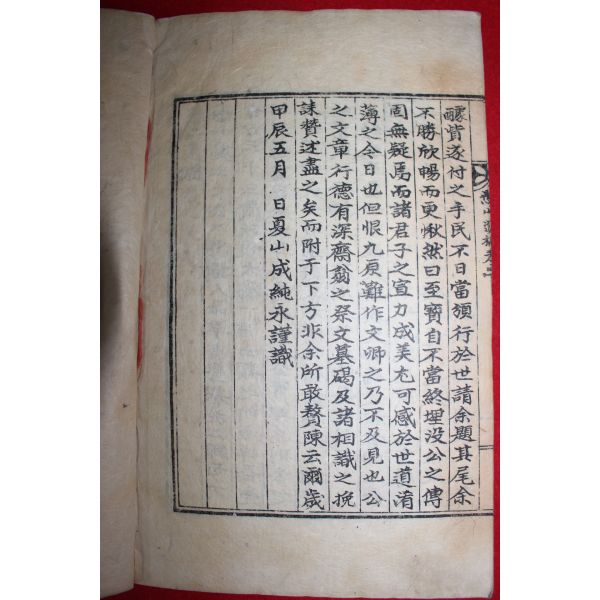 醵貲遂付之手民不日當頒行於世請余題其尾余
不勝欣暢而更愀然曰至寶自不當終埋没公之傳
固無疑焉而諸君子之宣力成美尤可感於世道淆
薄之今日也但恨九原難作文卿之乃不及見也公
之文章行德有深齋翁之祭文墓碣及諸相識之挽
誄贊述盡之矣而附于下方非余所敢贅陳云爾歲
甲辰五月 日夏山成純永謹識